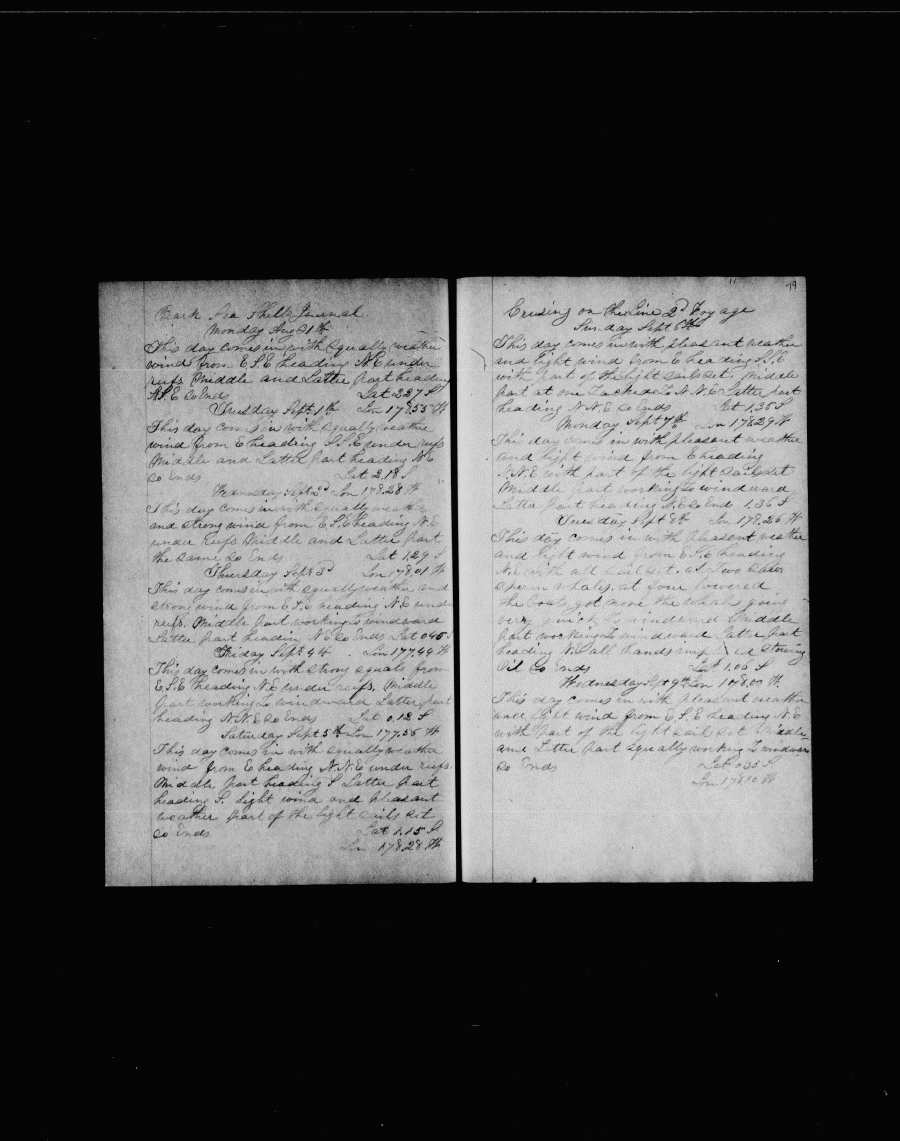 Bark Sea Shells Journal
Monday Aug 31th
This day comes in with squally weather
wind from E.S.E heading N.E under
reefs Middle and Latter part heading
N.E So Ends Lat 2.27 S
Tuesday Sept 1th Lon 178.55 W
This day coms in with squally weather
wind from E heading S.S.E under reefs
Middle and Latter part heading N.E
So Ends Lat 2.18 S
Wednesday Sept 2d Lon 178.28 W
This day comes in with squally weather
and strong wind from E.S.E heading N.E
under reefs Middle and Latter part
the same So Ends Lat 1.29 S
Thursday Sept 3d Lon 178.01 W
This day comes in with squally weather and
strong wind from E.S.E heading N.E under
reefs. Middle part working to windward
Latter part headin N.E So Ends Lat 0.45 S
Friday Sept 4th Lon 177.44 W
This day comes in with strong squals from
E.S.E heading N.E under reefs. Middle
part working to windward Latter part
heading N.N.E So Ends Lat 0.12 S
Saturday Sept 5th Lon 177.56 W
This day comes in with squally weather
wind from E heading N.N.E under reefs.
Middle part heading S Latter part
heading S. light wind and pleasant
weather part of the light sails set
So Ends Lat 1.15 S
Lon 178.28 W
79
Cruising on the Line 2d Voyage
Sunday Sept 6th
This day comes in with pleasent weather
and light wind from E heading S.E
with part of the light sails set. Middle
part at one Tacked to N.N.E Latter part
heading N.N.E So Ends Lat 1.35 S
Monday Sept 7th Lon 178.29 W
This day comes in with pleasent weather
and light wind from E heading
N.N.E with part of the light sails set
Middle part working to windward
Latter part heading N.E So End 1.36 S
Tuesday Sept 8th Lon 178.26 W
This day comes in with pleasent weather
and light wind from E.S.E heading
N.E with all sail set. at Two saw
sperm whales. at four lowered
the boats got none the whales going
very quick to windward Middle
part working to windward Latter part
heading N.E all hands stowing
Oil So Ends Lat 1.06 S
Wednesday Sept 9th Lon 178.00 W.
This day comes in with pleasant weather
and light wind from E.S.E heading N.E
with part of the light sail set Middle
and Latter part squally working to windward
So Ends Lat 0.35 S
Lon 178.10 W